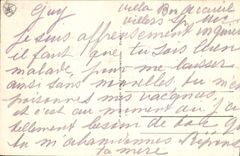 Guy
Villa Bon Accueil
Villers sr Mer
Je suis affreusement inquiète
il faut que tu sois bien
malade, pour me laisser
ainsi sans nouvelles, tu m'em
poisonnes mes vacances,
et c'est au moment où j'ai
tellement besoin de toi
tu m'abandonnes Réponds
ta mère